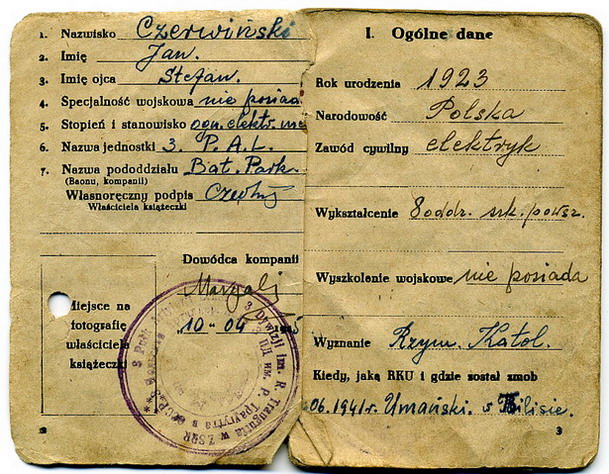 1. Nazwisko Czerwiński
2. Imię Jan.
3. Imię ojca Stefan.
4. Specjalność wojskowa nie posiada
5. Stopień i stanowisko ogn. elektr. me
6. Nazwa jednostki 3. P.A.L.
7. Nazwa pododdziału Bat. Park.
(Baonu, kompanii)
Własnoręczny podpis
Właściciela książeczki
Dowódca kompanii
Miejsce na
fotografię
właściciela
książeczki
10-04
3 Dywizji im. R. Traugutta w ZSRR
2
I. Ogólne dane
Rok urodzenia 1923
Narodowość Polska
Zawód cywilny elektryk
Wykształcenie 8 oddz. szk. powsz.
Wyszkolenie wojskowe nie posiada
Wyznanie Rzym. Katol.
Kiedy, jaką RKU i gdzie został zmob
06.1941r. Umański. w Tbilisie.
3